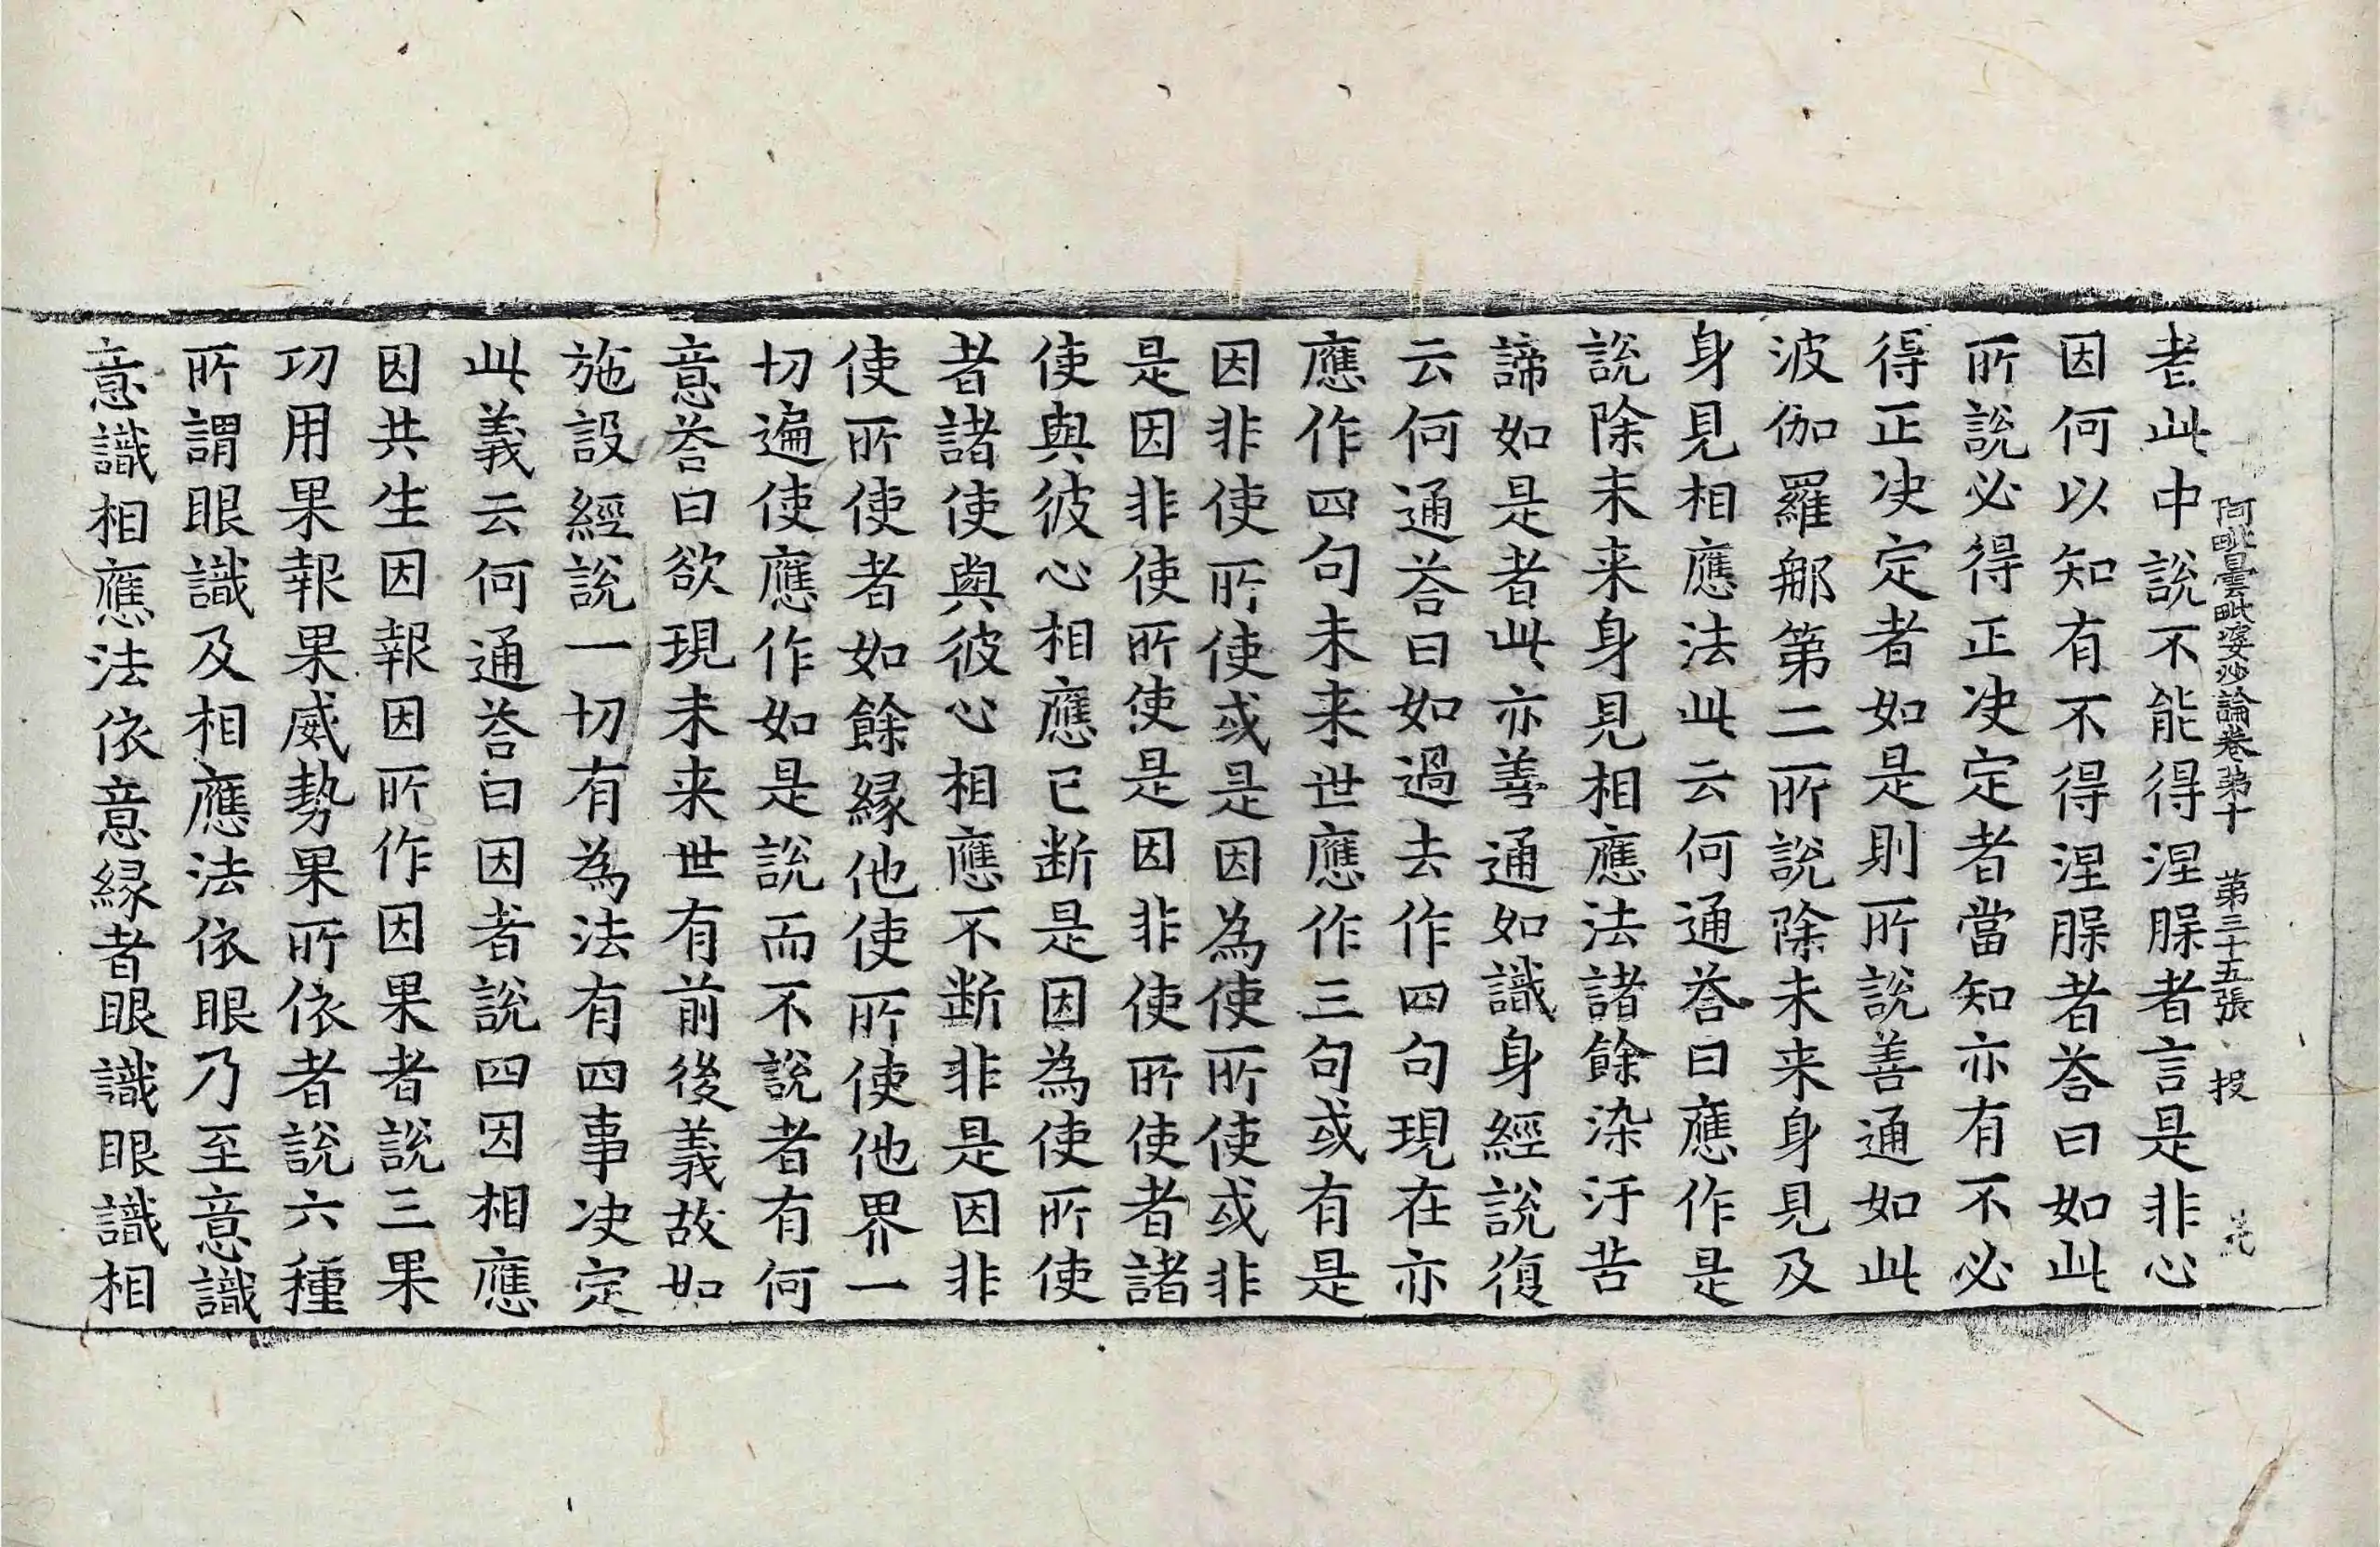 阿毗曇毗婆沙論卷第十　第三十五張　投
者此中說不能得涅槃者言是非心
因何以知有不得涅槃者荅曰如此
所說必得正决定者當知亦有不必
得正决定者如是則所說善通如此
波伽羅那第二所說除未来身見及
身見相應法此云何通荅曰應作是
說除未来身見相應法諸餘染汙苦
諦如是者此亦善通如識身經說復
云何通荅曰如過去作四句現在亦
應作四句未来世應作三句或有是
因非使所使或是因為使所使或非
是因非使所使是因非使所使者諸
使與彼心相應已断是因為使所使
者諸使與彼心相應不断非是因非
使所使者如餘縁他使所使他界一
切遍使應作如是說而不說者有何
意荅曰欲現未来世有前後義故如
施設經說一切有為法有四事决定
此義云何通荅曰因者說四因相應
因共生因報因所作因果者說三果
功用果報果威勢果所依者說六種
所謂眼識及相應法依眼乃至意識
意識相應法依意縁者眼識眼識相